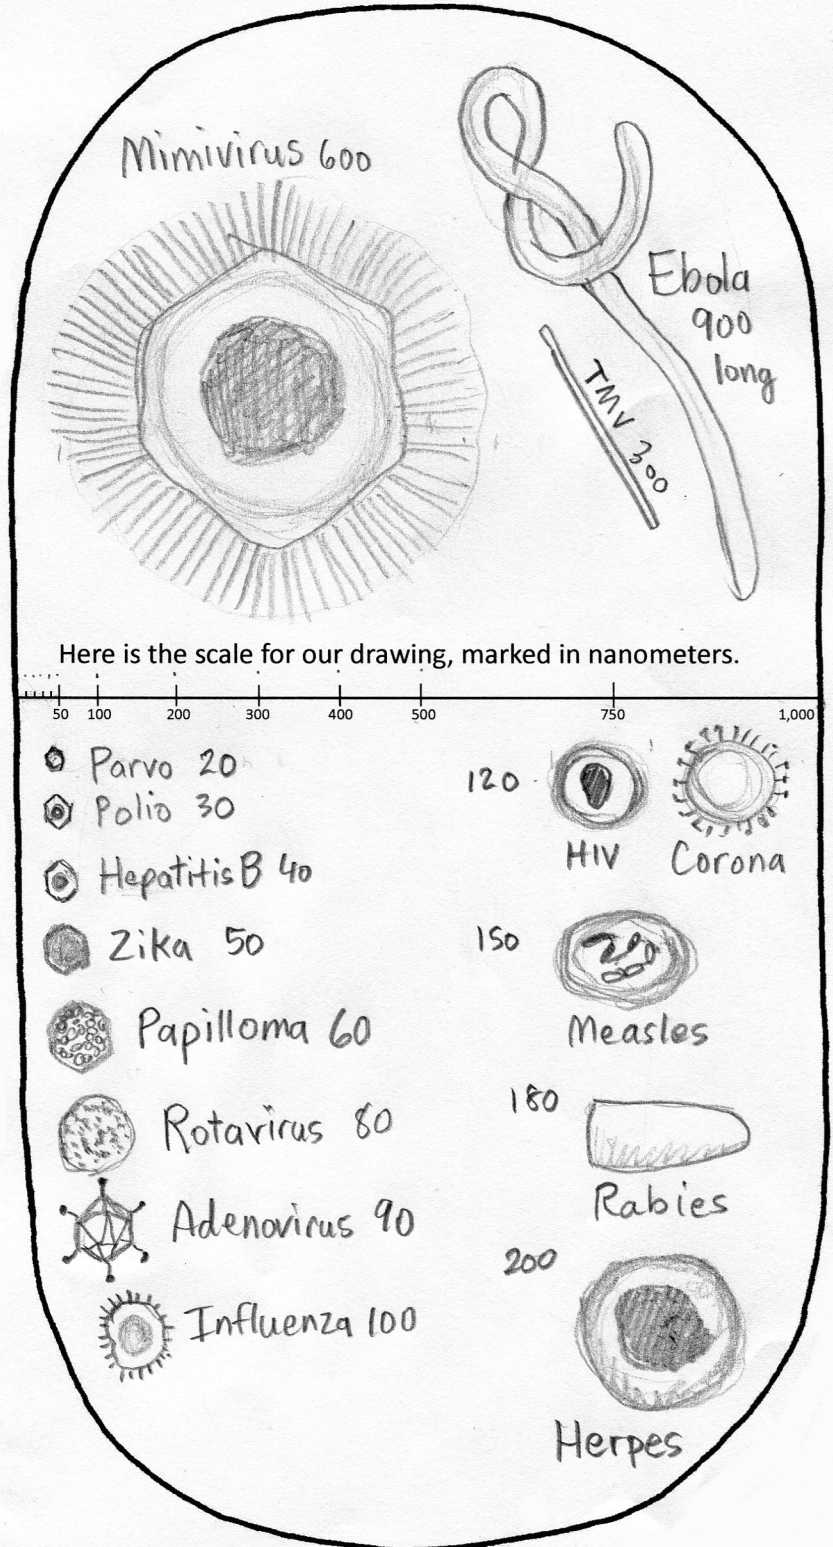 Mimivirus 600
Ebola
900
long
TMV 300
Here is the scale for our drawing, marked in nanometers.
50 100 200 300 400 500 750 1,000
Parvo 20
Polio 30
Hepatitis B 40
Zika 50
Papilloma 60
Rotavirus 80
Adenovirus 90
Influenza 100
120
HIV Corona
150
Measles
180
Rabies
200
Herpes